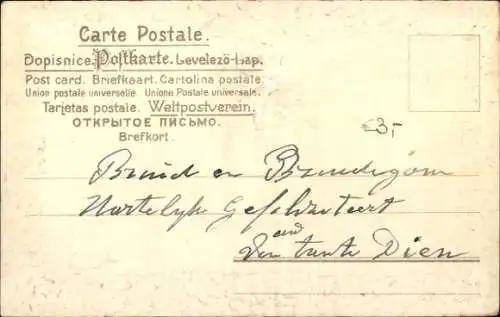 Carte Postale.
Dopisnice. Postkarte. Levelező-Lap.
Post card. Briefkaart. Cartolina postale.
Union postale universelle. Unione Postale universale.
Tarjetas postale. Weltpostverein.
ОТКРЫТОЕ ПИСЬМО.
Brefkort.
3,-
Bruid en Bruidegom
Hartelijk Gefeliciteert
tante Dien